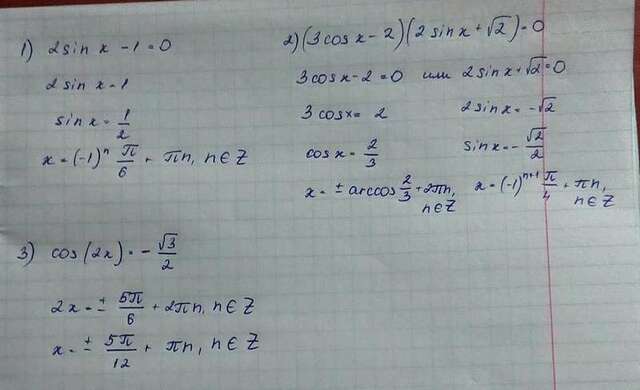 1) 2 sin x - 1 = 0
2 sin x = 1
sin x = 1/2
x = (-1)^n π/6 + πn, n ∈ Z
2) (3 cos x - 2)(2 sin x + √2) = 0
3 cos x - 2 = 0 или 2 sin x + √2 = 0
3 cos x = 2
2 sin x = -√2
cos x = 2/3
sin x = - √2/2
x = ± arccos 2/3 + 2πn, n ∈ Z
x = (-1)^(n+1) π/4 + πn, n ∈ Z
3) cos(2x) = - √3/2
2x = ± 5π/6 + 2πn, n ∈ Z
x = ± 5π/12 + πn, n ∈ Z